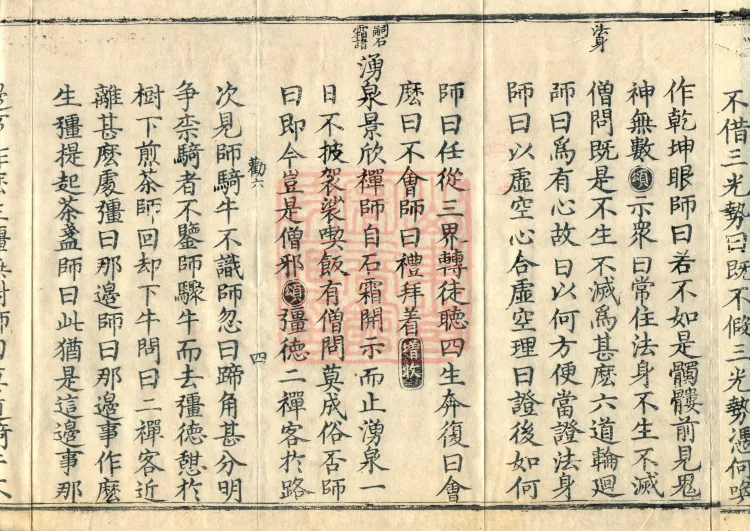 不借三光勢曰既不假三光勢憑何喚
作乾坤眼師曰若不如是髑髏前見鬼
神無數頌示衆曰常住法身不生不滅
法身
僧問既是不生不滅爲甚麽六道輪廻
師曰爲有心故曰以何方便當證法身
師曰以虛空心合虛空理曰證後如何
師曰任從三界轉徒聽四生奔復曰會
麽曰不會師曰禮拜着增收
嗣石霜諸
湧泉景欣禪師自石霜開示而止湧泉一
日不披袈裟喫飯有僧問莫成俗否師
曰即今豈是僧邪頌彊德二禪客於路
勸六
四
次見師騎牛不識師忽曰蹄角甚分明
争柰騎者不鑒師驟牛而去彊德憇於
樹下煎茶師回却下牛問曰二禪客近
離甚麽處彊曰那邉師曰那邉事作麽
生彊提起茶盞師曰此猶是這邉事那